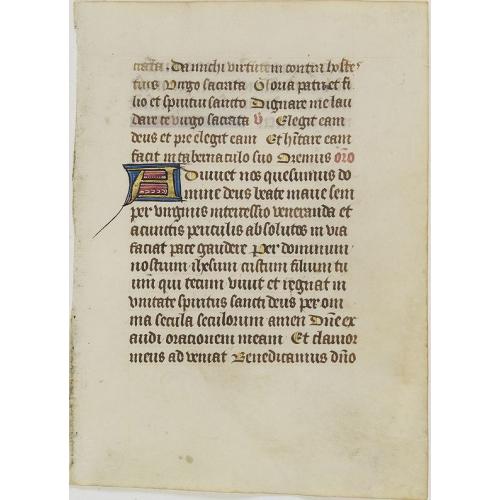 crata. Da michi virtutem contra hostes
tuos Virgo sacrata Gloria patri et fi
lio et spiritui sancto Dignare me lau
dare te virgo sacrata v̄ Elegit eam
deus et pre elegit eam Et h̄itare eam
facit in tabernaculo suo Oremus or̄o
Adiuuet nos quesumus do
mine deus beate marie sem
per virginis intercessio veneranda et
a cunctis periculis absolutos in via
faciat pace gaudere Per dominum
nostrum ihesum cristum filium tu
um qui tecum viuit et regnat in
vnitate spiritus sancti deus per om
nia secula seculorum amen Dn̄e ex
audi orationem meam Et clamor
meus ad te veniat Benedicamus dn̄o